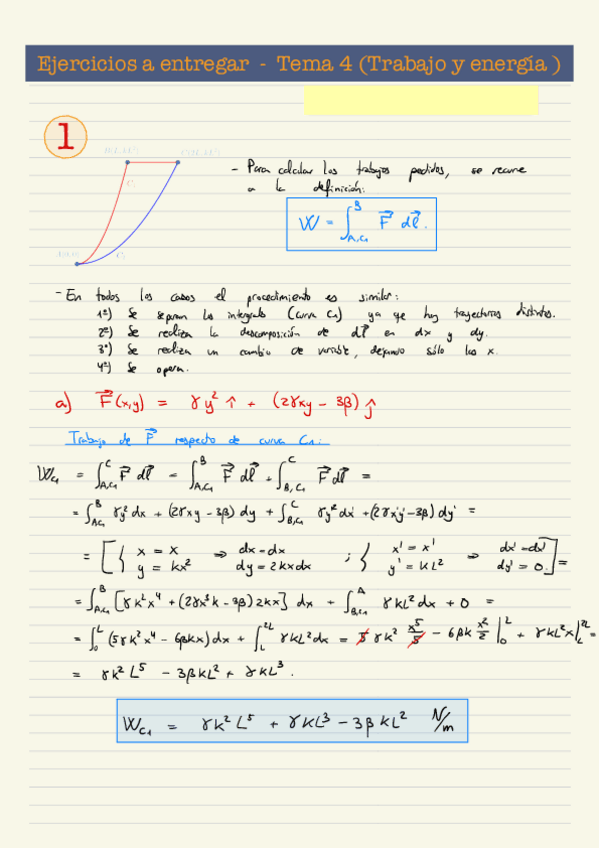 Ejercicios a entregar - Tema 4 (Trabajo y energía )
1
C₁
C₂
- Para calcular los trabajos pedidos, se recurre
a la definición:
W = ∫_{A,C₁}^{B} F⃗ dl⃗.
- En todos los casos el procedimiento es similar:
1º) Se separan las integrales (curva C₁) ya qe hay trayectorias distintas.
2º) Se realiza la descomposición de dl⃗ en dx y dy.
3º) Se realiza un cambio de variable, dejando sólo las x.
4º) Se opera.
a) F⃗(x,y) = γy² î + (2γxy - 3β) ĵ
Trabajo de F⃗ respecto de curva C₁:
W_{C₁} = ∫_{A,C₁}^{C} F⃗ dl⃗ = ∫_{A,C₁}^{B} F⃗ dl⃗ + ∫_{B,C₁}^{C} F⃗ dl⃗ =
= ∫_{AC₁}^{B} γy² dx + (2γxy - 3β) dy + ∫_{B,C₁}^{C} γy'² dx' + (2γx'y' - 3β) dy' =
= [ { x = x ⇒ dx = dx ; { x' = x' ⇒ dx' = dx'
y = kx² dy = 2kxdx y' = KL² dy' = 0. ] =
= ∫_{A,C₁}^{B} [γk²x⁴ + (2γx³k - 3β) 2kx] dx + ∫_{B,C₁}^{A} γKL² dx + 0 =
= ∫_0^L (5γk²x⁴ - 6βkx) dx + ∫_L^{2L} γKL² dx = 5γk² x⁵/5 - 6βk x²/2 |_0^L + γKL²x |_L^{2L} =
= γk²L⁵ - 3βkL² + γKL³.
W_{C₁} = γk²L⁵ + γKL³ - 3βkL² N/m